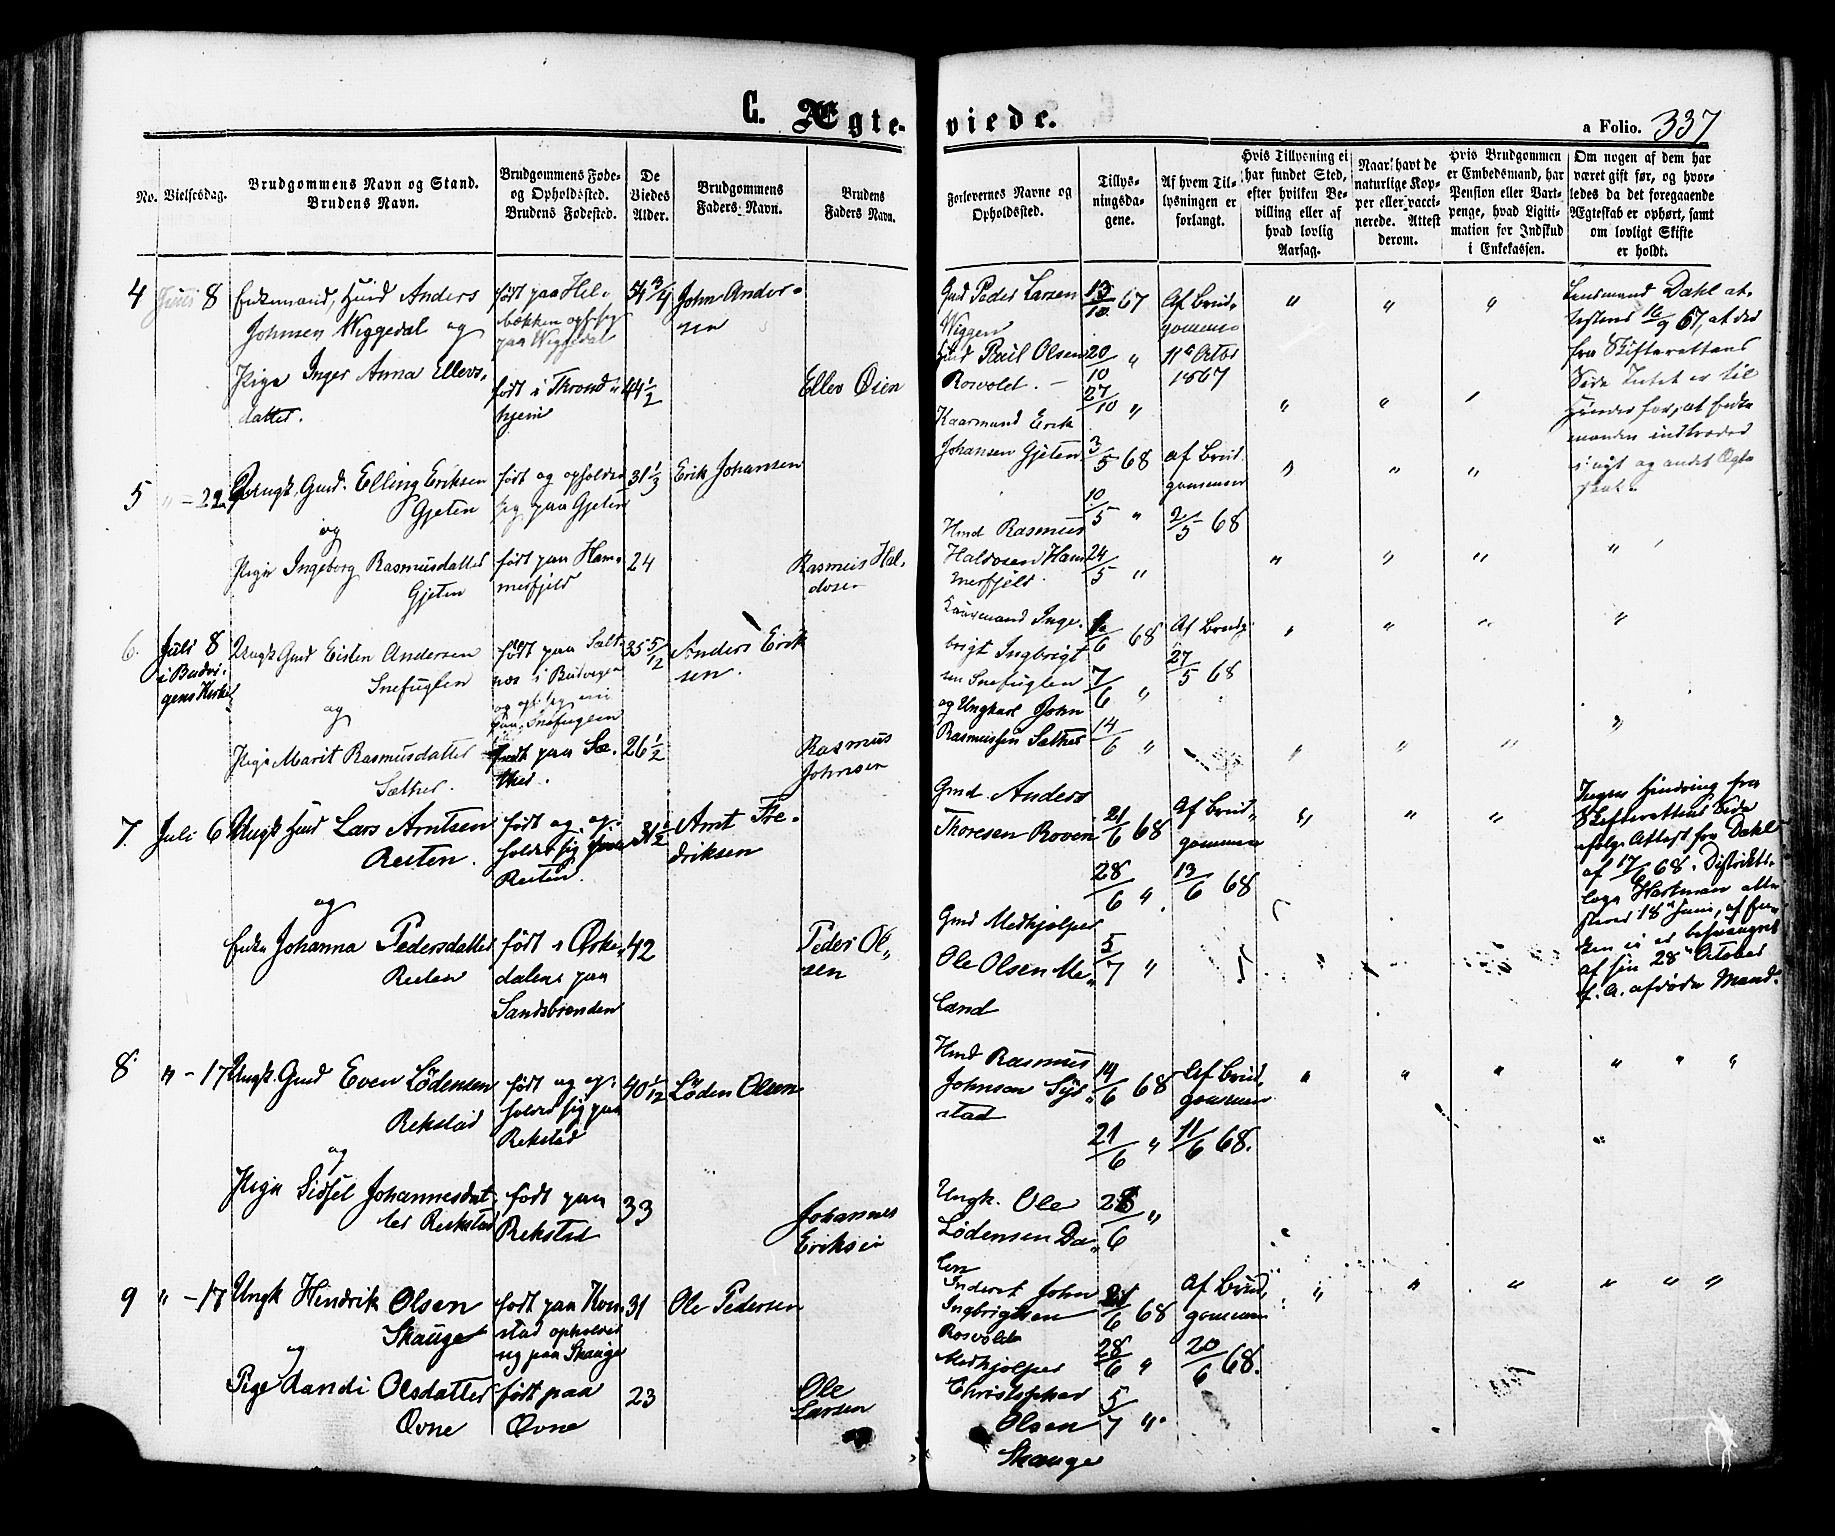 C. Ægte-
viede.
a Folio. 337
No.
Vielsesdag.
Brudgommens Navn og Stand.
Brudens Navn.
Brudgommens Føde-
og Opholdssted.
Brudens Fødested.
De
Viedes
Alder.
Brudgommens
Faders Navn.
Brudens
Faders Navn.
Forlovernes Navne og
Opholdssted.
Tillys-
ningsda-
gene.
Af hvem Til-
lysningen er
forlangt.
Hvis Tillysning ei
har fundet Sted,
efter hvilken Be-
villing eller af
hvad lovlig
Aarsag.
Naar havt de
naturlige Kop-
per eller vacci-
nerede. Attest
derom.
Hvis Brudgommen
er Embedsmand, har
Pension eller Vart-
penge, hvad Legiti-
mation for Indskud
i Enkekassen.
Om nogen af dem har
været gift før, og hvor-
ledes da det foregaaende
Ægteskab er ophørt, samt
om lovligt Skifte
er holdt.
4 Juni 8
Enkemand, Huusd Anders
Johnsen Wiggedal og
Pige Inger Anna Ellevs-
datter.
født paa Hel-
bækken oph. sig
paa Wiggedal
født i Thrond-
hjem
54 3/4
44 1/2
John Ander-
sen
Ellev Øien
Gmd Peder Larsen
Wiggen
Paul Olsen
Rosvold. -
13/10 67
20/10 "
27/10 "
Af Brud-
gommen
11te Octbr
1867
Lensmand Dahl at-
testerer 16/9 67, at der
fra Skifterettens
Side Intet er til
Hinder for, at Enke
manden indtræder
i nyt og andet Ægte
skab.
5 " - 22
Ungk. Gmd. Elling Eriksen
Gjeten
og
Pige Ingeborg Rasmusdatter
Gjeten
født og opholder
sig paa Gjeten
født paa Ham-
merfjeld
31 1/3
24
Erik Johansen
Rasmus Hal-
dosen
Kaarmand Erik
Johansen Gjeten
Hmd Rasmus
Haldosen Ham
merfjeld.
3/5 68
10/5 "
24/5 "
af Brud-
gommen
2/5 68
6. Juli 8
i Budvi-
gens Kirke
Ungk Gmd Eisten Andersen
Snefuglen
og
Pige Marit Rasmusdatter
Sæther.
født paa Salt-
nes i Budvigen
og oph. sig
paa Snefuglen
født paa Sæ-
ther.
35 5/12
26 1/2
Anders Erik
sen.
Rasmus
Johnsen
Kaarmand Inge-
brigt Ingbrigt
sen Snefuglen
og Ungkarl John
Rasmussen Sæther
6 68
7/6 "
14/6 "
Af Brudg.
27/5 68
7. Juli 6
Ungk Lars Arntsen
Resten.
og
Enke Johanna Pedersdatter
Resten
født og op-
holder sig paa
Resten.
født i Ørke-
dalen paa
Sandsbrenden
31 1/2
42
Arnt Fre-
driksen
Peder Ol-
sen
Gmd Anders
Thoresen Roven
Gmd Medhjelper
Ole Olsen Me-
land
21/6 68
28/6 "
5/7 "
Af Brud-
gommen
13/6 68
Ingen Hindring fra
Skifterettens Side
ifølge Attest fra Dahl
af 17/6 68. Distrikts-
læge Hartman atte-
sterer 18de Juni, at En-
ken ei er besvangret
af sin 28de October
f. A. afdøde Mand.
8. " - 17
Ungk. Gmd Even Lødensen
Rekstad
og
Pige Sidsel Johannesdat-
ter Rekstad
født og op-
holder sig paa
Rekstad
født paa
Rekstad
40 1/12
33
Løden Olsen
Johannes
Eriksen
Hmd Rasmus
Johnson Syd-
stad
Ungk. Ole
Lødensen Da-
len
14/6 68
21/6 "
28/6 "
Af Brud-
gommen
11/6 68.
9 " - 17
Ungk Hendrik Olsen
Skauge
og
Pige Olsdatter
Øvne
født paa Hom-
stad opholder
sig paa Skauge
født paa
Øvne
31
23
Ole Pedersen
Ole
Larsen
Inderst John
Ingbrigtsen
Rosvold
Medhjelper
Christopher
Olsen
Skauge
21/6 68
28/6 "
5/7 "
Af Brud-
gommen
20/6 68.